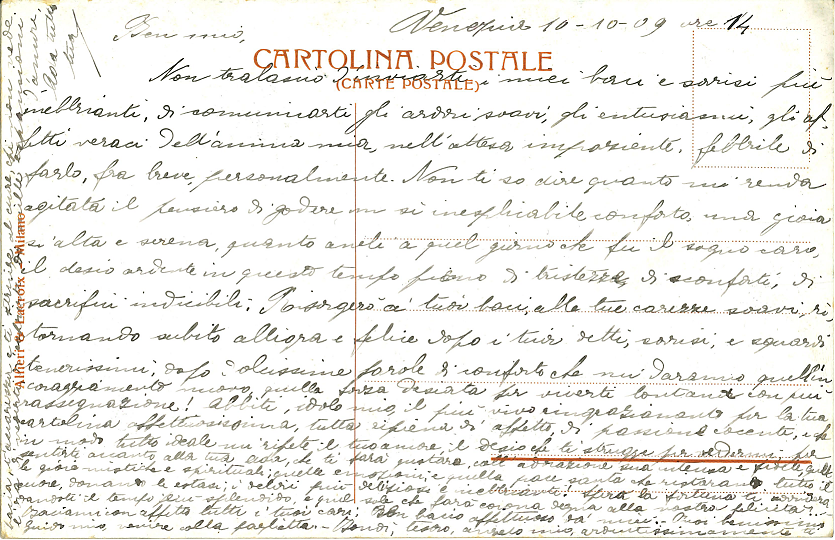 Venezia 10-10-09 ore 14
Ben mio,
CARTOLINA POSTALE
(CARTE POSTALE)
Non tralascio d'inviarti i miei baci e sorisi più
inebbrianti, di comunicarti gli ardori soavi, gli entusiasmi, gli af-
fetti veraci dell'anima mia, nell'attesa impaziente, febbrile di
farlo, fra breve, personalmente. Non ti so dire quanto mi renda
agitata il pensiero di godere un sì inesplicabile conforto, una gioia
sì alta e serena, quanto aneli a quel giorno che fu il sogno caro,
il desio ardente in questo tempo pieno di tristezze, di sconforti, di
sacrifici indicibili. Risorgerò a' tuoi baci, alle tue carezze soavi, ri-
tornando subito allegra e felice dopo i tuoi detti, sorisi, e sguardi
tenerissimi, dopo parole di conforto che mi daranno quell'in-
coraggiamento nuovo, quella forza desiata per viverti lontana con più
rassegnazione! Abbiti, idolo mio, il più vivo ringraziamento per la tua
cartolina affettuosissima, tutta ripiena d'affetto, di passione cocente, e che
in modo tutto ideale mi ripete il tuo amore, il desio che ti strugge per vedermi, per
sentirti accanto alla tua che ti farà gustare coll'adorazione sua intensa e
le gioie mistiche e spirituali, quelle emozioni, e quella pace santa che tutto il
cuore, donando le estasi, i deliri più deliziosi e inebbrianti! Spera la fortuna ti sorriderà
dandoti il tempo più splendido, e quel sole che farà corona degna alla nostra felicità!
Baciami con affetto tutti i tuoi cari; Un bacio affettuoso da' miei.
Guido mio, venire colla paglietta. - Bondì, tesoro, angelo mio, ardentissimamente
Alfieri & Lacroix, Milano